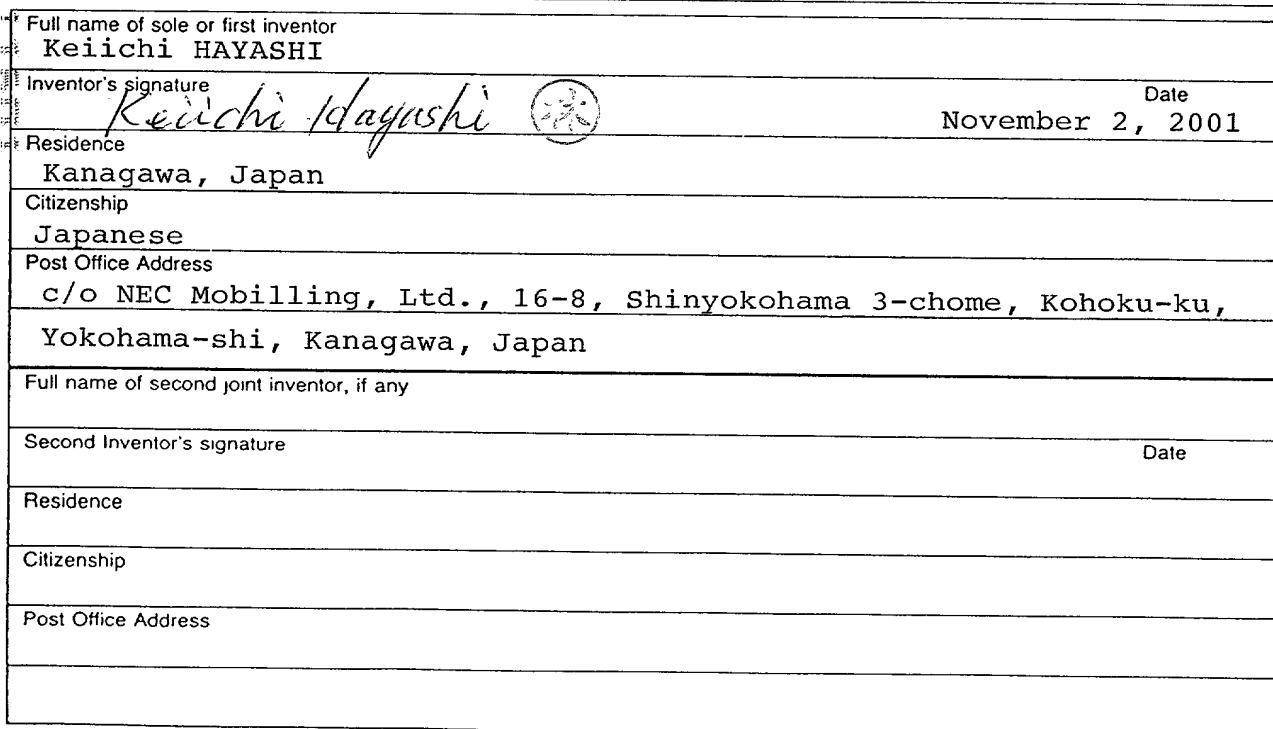 Full name of sole or first inventor
Keiichi HAYASHI
Inventor's signature
Keiichi Hayashi
Date
November 2, 2001
Residence
Kanagawa, Japan
Citizenship
Japanese
Post Office Address
c/o NEC Mobilling, Ltd., 16-8, Shinyokohama 3-chome, Kohoku-ku,
Yokohama-shi, Kanagawa, Japan
Full name of second joint inventor, if any
Second Inventor's signature
Date
Residence
Citizenship
Post Office Address